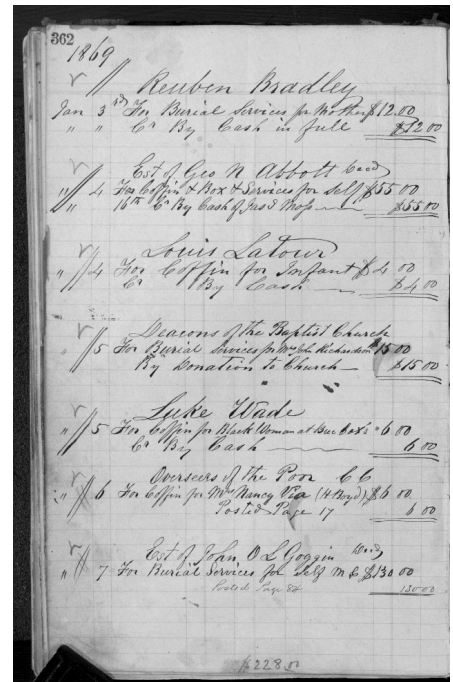 362
1869
Reuben Bradley
Jan 3rd For Burial Services for Mother $12.00
" " Cr By Cash in full $12 00
Est of Geo N Abbott Decd
" 4 For Coffin & Box & Services for Self $55 00
" 16th Cr By Cash of Jas S Moss $55 00
Louis Latour
" 4 For Coffin for Infant $4 00
Cr By Cash $4 00
Deacons of the Baptist Church
" 5 For Burial Services for Mrs John Richardson $15 00
By Donation to Church $15 00
Luke Wade
" 5 For Coffin for Black Woman at 6 00
Cr By Cash 6 00
Overseers of the Poor C C
" 6 For Coffin for Mrs Nancy Via (H Boyd) $6 00
Posted Page 17 6 00
Est of John O L Goggin Decd
" 7 For Burial Services for Self M C $130 00
Posted Page 84 130 00
228.00